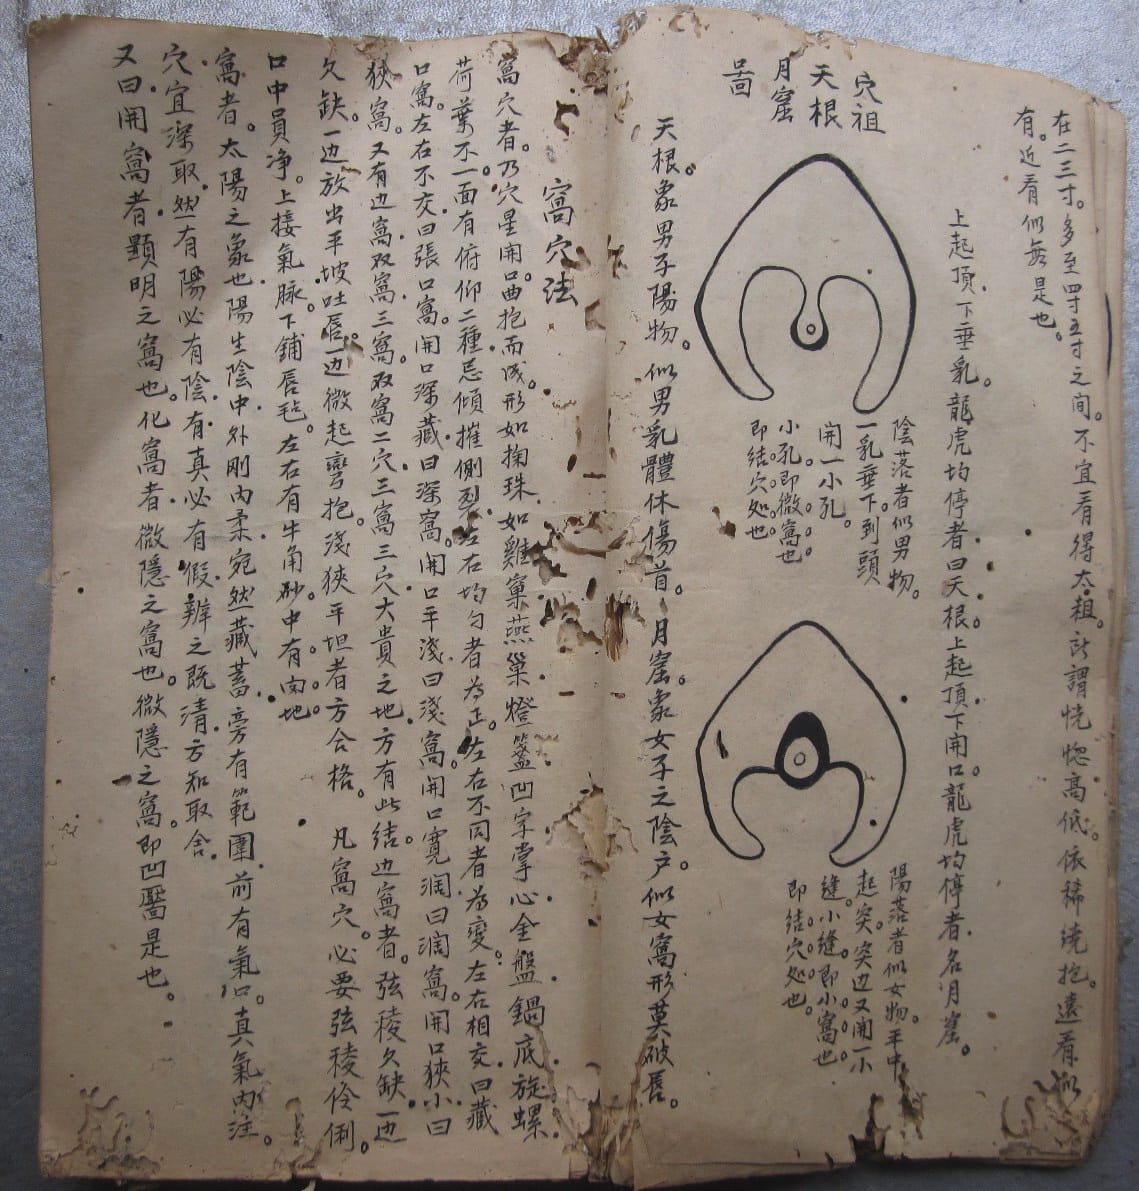 在二三寸。多至四寸五寸之间。不宜看得太粗。所謂恍惚高低。依稀繞抱。遠看似
有。近看似無是也。
上起頂。下垂乳。龍虎均停者曰天根。上起頂。下開口。龍虎均停者。名月窟。
穴祖
天根
月窟
啚
陰落者似男物。
一乳垂下。到頭
開一小孔。
小孔即微窩也
即結穴处也
陽落者似女物。平中
起突。突边又開一小
縫。小縫即小窩也
即結穴处也。
天根。象男子陽物。似男乳體休傷首。月窟。象女子之陰户。似女窩形莫破唇。
窩穴法
窩穴者。乃穴星開口。曲抱而成。形如掬珠。如雞窠燕巢燈盞凹字掌心金盤鍋底旋螺
荷葉不一。面有俯仰二種。忌傾摧側裂。左右均匀者為正。左右不同者為变。左右相交。曰藏
口窩。左右不交。曰張口窩。開口深藏。曰深窩。開口平淺。曰淺窩。開口寬濶。曰濶窩。開口狹小。曰
狹窩。又有边窩双窩三窩。双窩二穴。三窩三穴。大貴之地。方有此結。边窩者。弦稜欠缺。一边
欠缺。一边放出平坡吐唇。一边微起彎抱。淺狹平坦者方合格。 凡窩穴。必要弦稜伶俐。
口中員净。上接氣脉。下鋪唇毡。左右有牛角砂。中有
窩者。太陽之象也。陽生陰中。外剛内柔。宛然藏蓄。旁有範圍。前有氣口。真氣内注。
穴宜深取。然有陽必有陰。有真必有假。辨之既清。方知取舍。
又曰。開窩者。顯明之窩也。化窩者。微隱之窩也。微隱之窩。即凹靨是也。